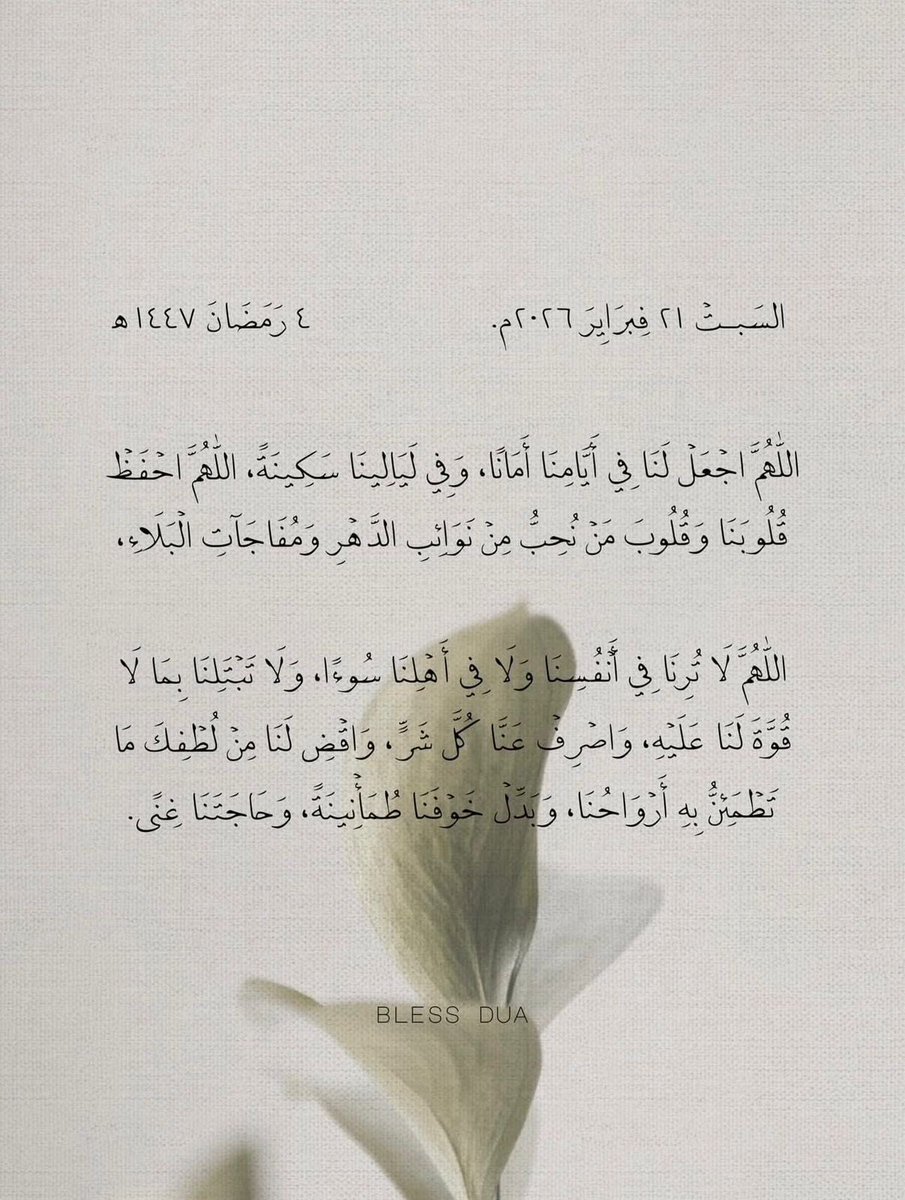 السَبـتْ ٢١ فِبرَايِرَ ٢٠٢٦م. ٤ رَمَضَانَ ١٤٤٧هـ
اللَّهُمَّ اجْعَلْ لَنَا فِي أَيَّامِنَا أَمَانًا، وَفِي لَيَالِينَا سَكِينَةً، اللَّهُمَّ احْفَظْ
قُلُوبَنَا وَقُلُوبَ مَنْ نُحِبُّ مِنْ نَوَائِبِ الدَّهْرِ وَمُفَاجَآتِ الْبَلَاءِ،
اللَّهُمَّ لَا تُرِنَا فِي أَنْفُسِنَا وَلَا فِي أَهْلِنَا سُوءًا، وَلَا تَبْتَلِنَا بِمَا لَا
قُوَّةَ لَنَا عَلَيْهِ، وَاصْرِفْ عَنَّا كُلَّ شَرٍّ، وَاقْضِ لَنَا مِنْ لُطْفِكَ مَا
تَطْمَئِنُّ بِهِ أَرْوَاحُنَا، وَبَدِّلْ خَوْفَنَا طُمَأْنِينَةً، وَحَاجَتَنَا غِنًى.
BLESS DUA